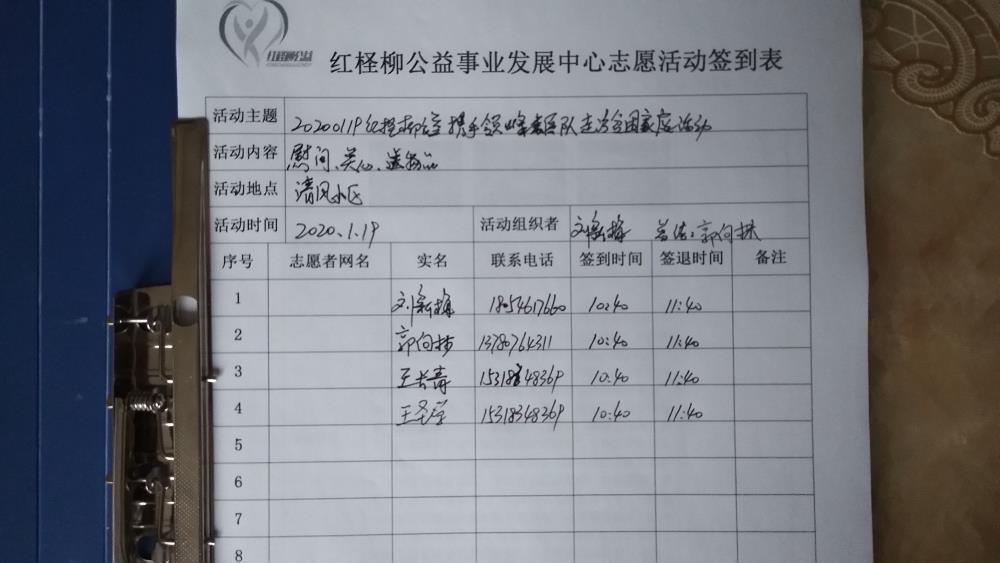 红柽柳公益
红柽柳公益事业发展中心志愿活动签到表
活动主题 20200119红柽柳公益携手领峰志愿队走访贫困家庭活动
活动内容 慰问、关心、送物品
活动地点 清风小区
活动时间 2020.1.19 活动组织者 刘新梅 总结:郭向林
序号 志愿者网名 实名 联系电话 签到时间 签退时间 备注
1 刘新梅 18054617660 10:40 11:40
2 郭向林 13780764311 10:40 11:40
3 王长青 15318348369 10:40 11:40
4 15318348369 10:40 11:40
5
6
7
8